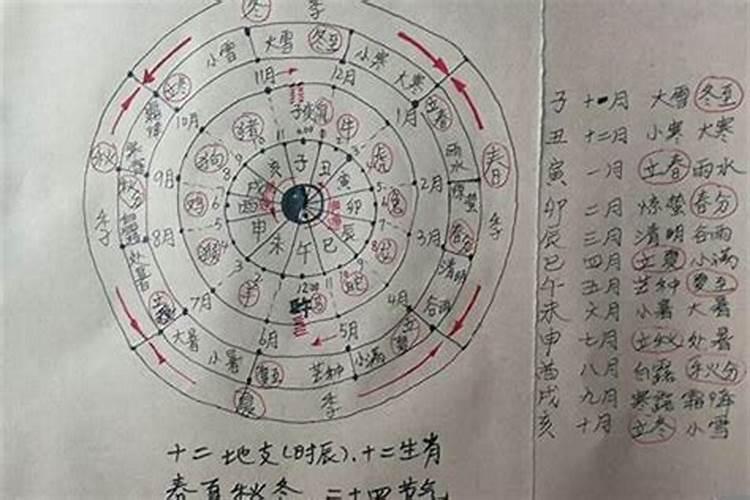 冬 季
小雪 大雪 冬至 小寒 大寒
立冬 11月 12月 立春
10月 1月 雨水
猪 子 鼠 牛 虎
秋 狗 亥 子 丑 寅 春
秋分 9月 戌 2月 惊蛰
鸡 酉 卯 兔
季 8月 申 辰 3月 春分 季
处暑 猴 未 午 巳 蛇 清明
羊 12:00 马
立秋 7月 4月 谷雨
大暑 6月 5月 立夏
小暑 夏至 芒种 小满
夏 季
子 十一月 大雪 冬至
丑 十二月 小寒 大寒
寅 一月 立春 雨水
卯 二月 惊蛰 春分
辰 三月 清明 谷雨
巳 四月 立夏 小满
午 五月 芒种 夏至
未 六月 小暑 大暑
申 七月 立秋 处暑
酉 八月 白露 秋分
戌 九月 寒露 霜降
亥 十月 立冬 小雪
十二地支(时辰)、十二生肖
春夏秋冬 二十四节气